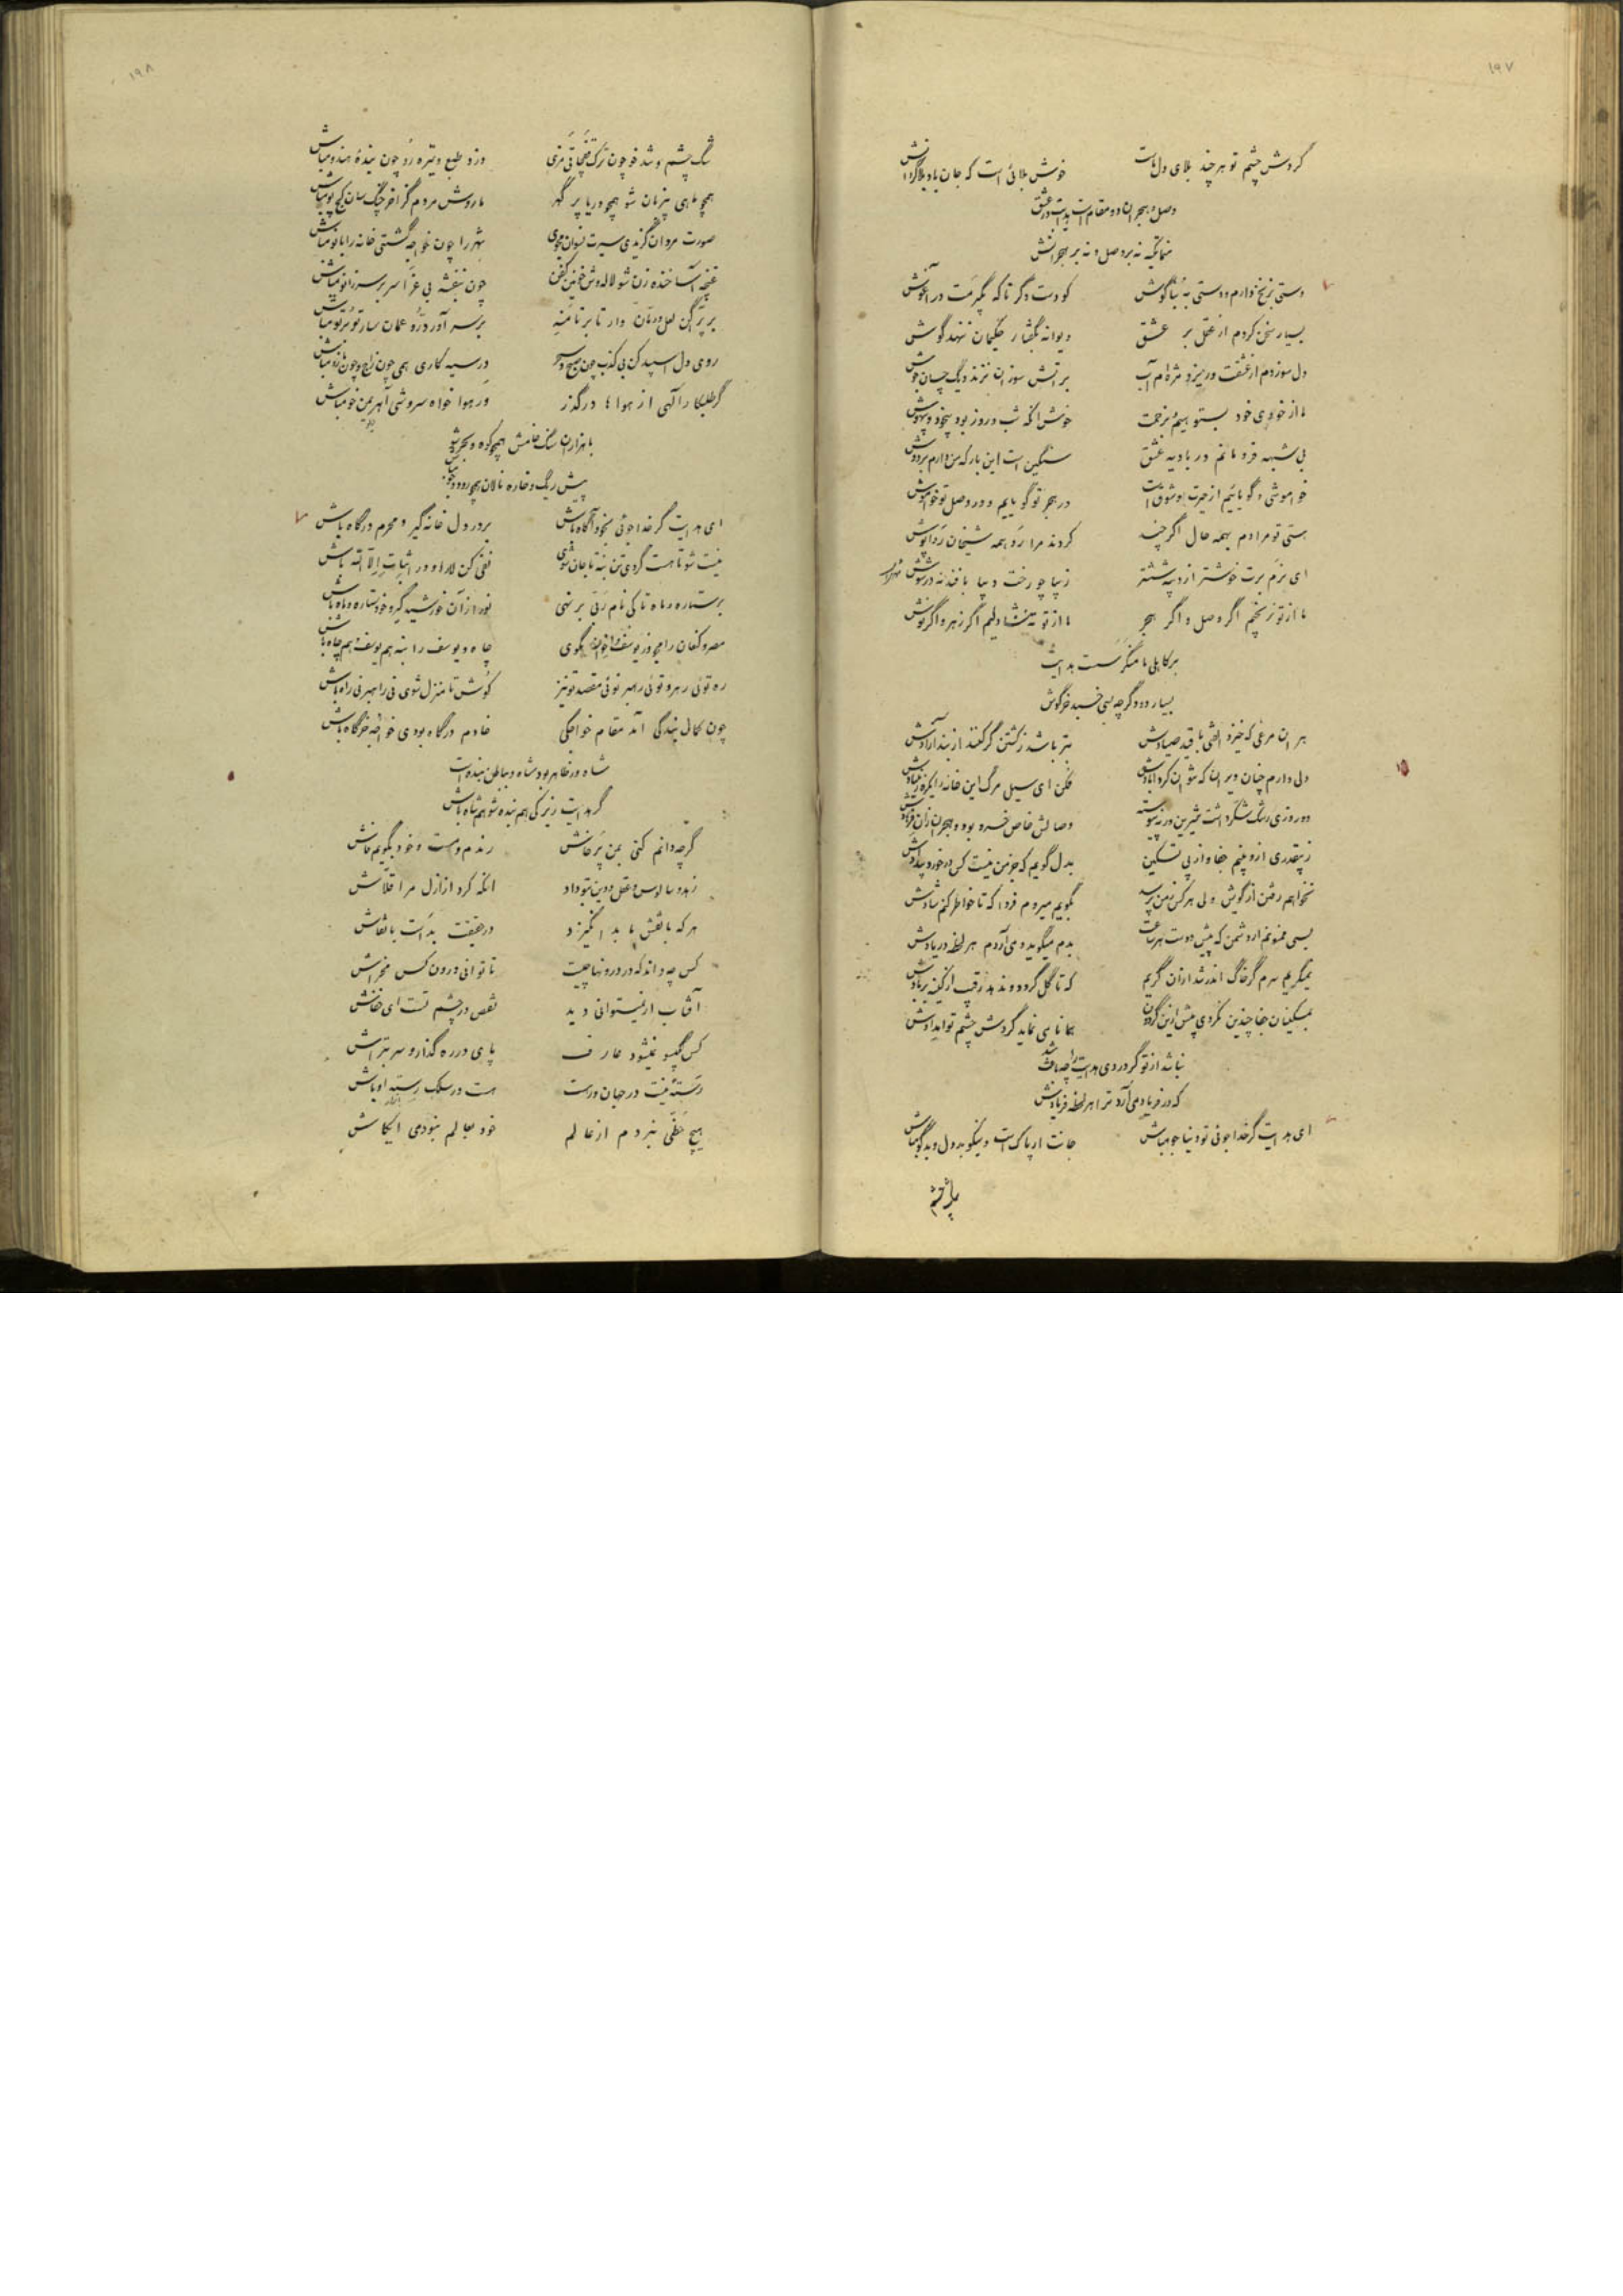 ۱۹۷
گردش چشم تو هر چند بلای دل ماست خوش بلائی است که جان باد بلاگردانش
وصل و هجران دو مقام است هدایت در عشق
نه بر وصل و نه بر هجرانش
دستی بزنخ دارم و دستی به بناگوش کو دست دگر تا که بگیرمت در آغوش
بسیار سخن کردم از عقل بر عشق دیوانه بگفتار حکیمان ننهد گوش
دل سوزدم از عشقت و ریزد مژه‌ام آب بر آتش سوزان نزند دیگ چسان جوش
ما از خودی خود بزحمت خوش آنکه شب و روز بود بیخود و بیهوش
بی شبهه فرو مانم در بادیه عشق سنگین است این بار که من دارم بر دوش
خواموشی و گویائیم از حیرت و شوق است در هجر تو گویایم و در وصل تو خواموش
هستی تو مرادم بهمه حال اگر چند کردند مرا رد همه شیخان رداپوش
ای بزم برت خوشتر از دیبه ششتر زیبا چو رخت دیبا بافند نه در شوش
ما از تو نرنجیم اگر وصل و اگر هجر ما از تو دلیم اگر زهر و اگر نوش
بر کاهلی ما منگر هدایت
بسیار دود گرچه بسی خسبد خرگوش
هر ان مرغی که خیزد الفتی با قید صیادش بتر باشد ز کشتن گر کنند از بند آزادش
دلی دارم چنان ویران که نتوان کرد آبادش فکن ای سیل مرگ این خانه را یکره ز بنیادش
دو روزی رشک شکر داشت شیرین ورنه پیوسته وصالش خاص خسرو بود و هجران زان فرهادش
ز بیقدری ازو بینم جفا و از پی تسکین بدل گویم که جز من نیست کس در خورد بیدادش
نخواهم رفتن از کویش ولی هر کس ز من پرسد بگویم میروم فردا که تا خاطر کنم شادش
بسی ممنونم از دشمن که پیش دوست هر ساعت بدم میگوید و می‌آردم هر لحظه در یادش
نمیگریم سرم گر خاک اندر شد ازان گریم که تا گل گردد و ندهد رقیب از کینه بر بادش
بمسکینان جفا چندین نکردی پیش ازین گردون همانا می نماید گردش چشم تو امدادش
نباشد از تو گر دردی هدایت را چه باعث شد
که در فریاد می‌آرد ترا هر لحظه فریادش
ای هدایت گر خدا جوئی تو دنیا جو مباش جانت ار پاک است و نیکو بد دل و بدگو مباش
۱۹۸
تنگ چشم و تندخو چون ترک قبچاقی مزی دزد طبع و تیره رو چون بندهٔ هندو مباش
همچو ماهی بیزبان شو همچو دریا پر گهر مار وش مردم گزا خرچنگ سان کج پو مباش
صورت مردان گزیدی سیرت نسوان مجوی شهر را چون خواجه گشتی خانه را بانو مباش
غنچه آسا خنده زن شو لاله وش خونین کفن چون بنفشه بی عزا سر بر سر زانو مباش
روی دل اسپید کن بی کذب چون صبح و سحر در سیه کاری همی چون زاغ و چون مازو مباش
گر طلبکار آلهی از هواها درگذر ور هوا خواه سروشی آهریمن خو مباش
با هزاران سنگ خامش همچو کوه و بحر شو
پیش ریگ و خاره نالان همچو رود و جو مباش
ای هدایت گر خدا جوئی بخود آگاه باش بر در دل خانه گیر و محرم درگاه باش
نیست شو تا هست گردی تن بنه تا جان شوی نفی کن لا را و در اثبات الا الله باش
بر ستاره و ماه تا کی نام ربی بر نهی نور از آن خورشید گیر و خود ستاره و ماه باش
مصر و کنعان را مجو ز یوسف و اخوان مگوی چاه و یوسف را بنه هم یوسف هم چاه باش
ره توئی رهرو توئی رهبر توئی مقصد تو نیز کوش تا منزل شوی نی راهبر نی راه باش
چون کمال بندگی آمد مقام خواجگی خادم درگاه بودی خواجه خرگاه باش
شاه در ظاهر بود شاه و بباطن بنده است
گر هدایت زیرکی هم بنده شو هم شاه باش
گرچه دانم کنی بمن پرخاش رندم و مست و خود بگویم فاش
زهد و سالوس و عقل و دین بتو داد انکه کرد از ازل مرا قلاش
هر که با نقش ما بد انگیزد در حقیقت بد است با نقاش
کس چه داند که در درونها چیست تا توانی درون کس مخراش
آفتاب ار نیستوانی دید نقص در چشم تست ای خفاش
کس بگیسو نمیشود عارف پای در ره گذار و سر بتراش
رستهٔ نیست در جهان درست هست در سلک رسته اوباش
هیچ حظی نبردم از عالم خود بعالم نبودی ایکاش